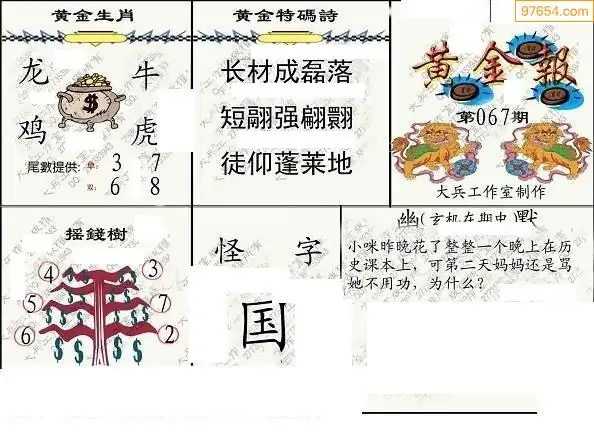 97654.com
黄金生肖
龙 牛
鸡 虎
尾數提供: 单: 3 7
双: 6 8
黄金特碼詩
长材成磊落
短翮强翩翾
徒仰蓬莱地
黄金報
第067期
大兵工作室制作
摇錢樹
4 3
5 7
6 2
怪字
国
幽(玄机在期中)默
小咪昨晚花了整整一个晚上在历
史课本上，可第二天妈妈还是骂
她不用功，为什么？